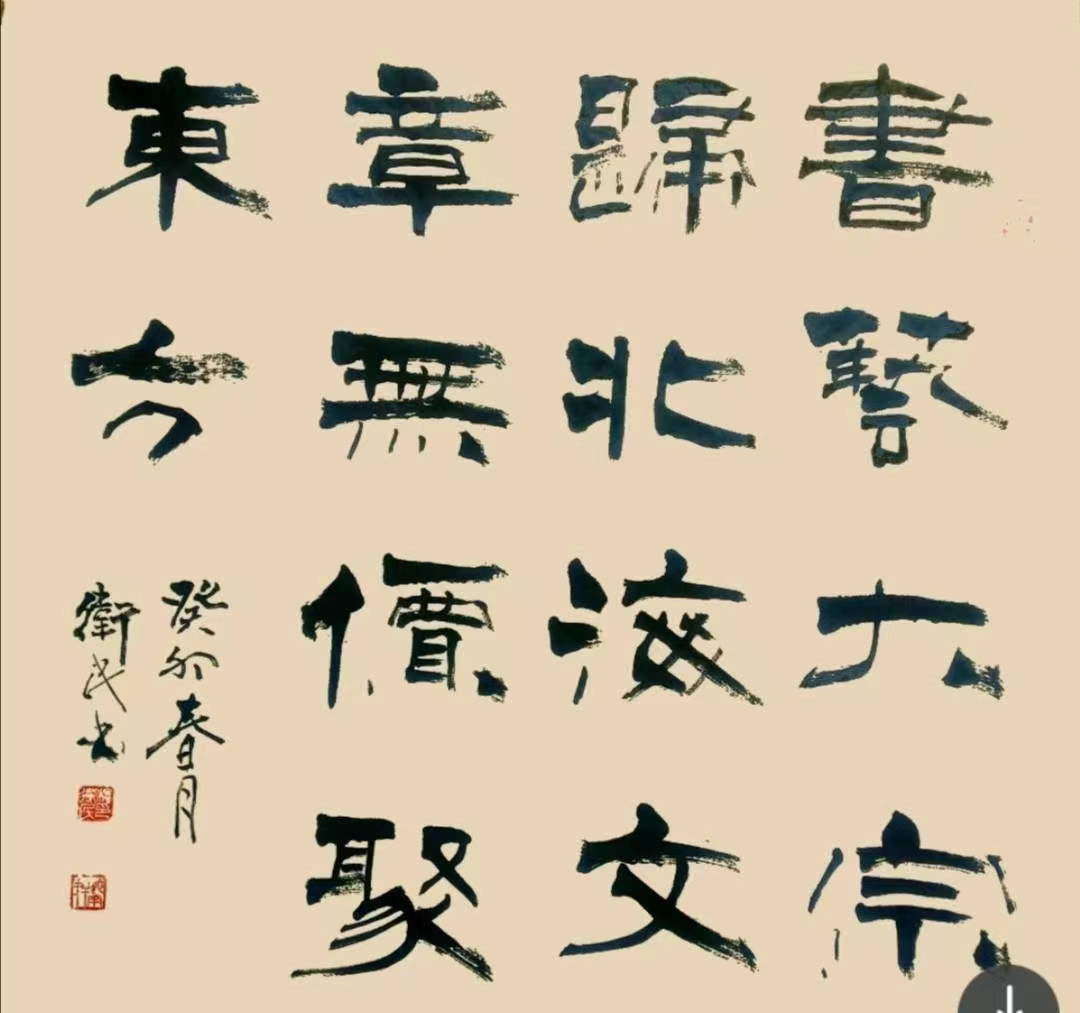 書藝大宗
歸北海文
章無價聚
東方
癸卯春月
衛民書